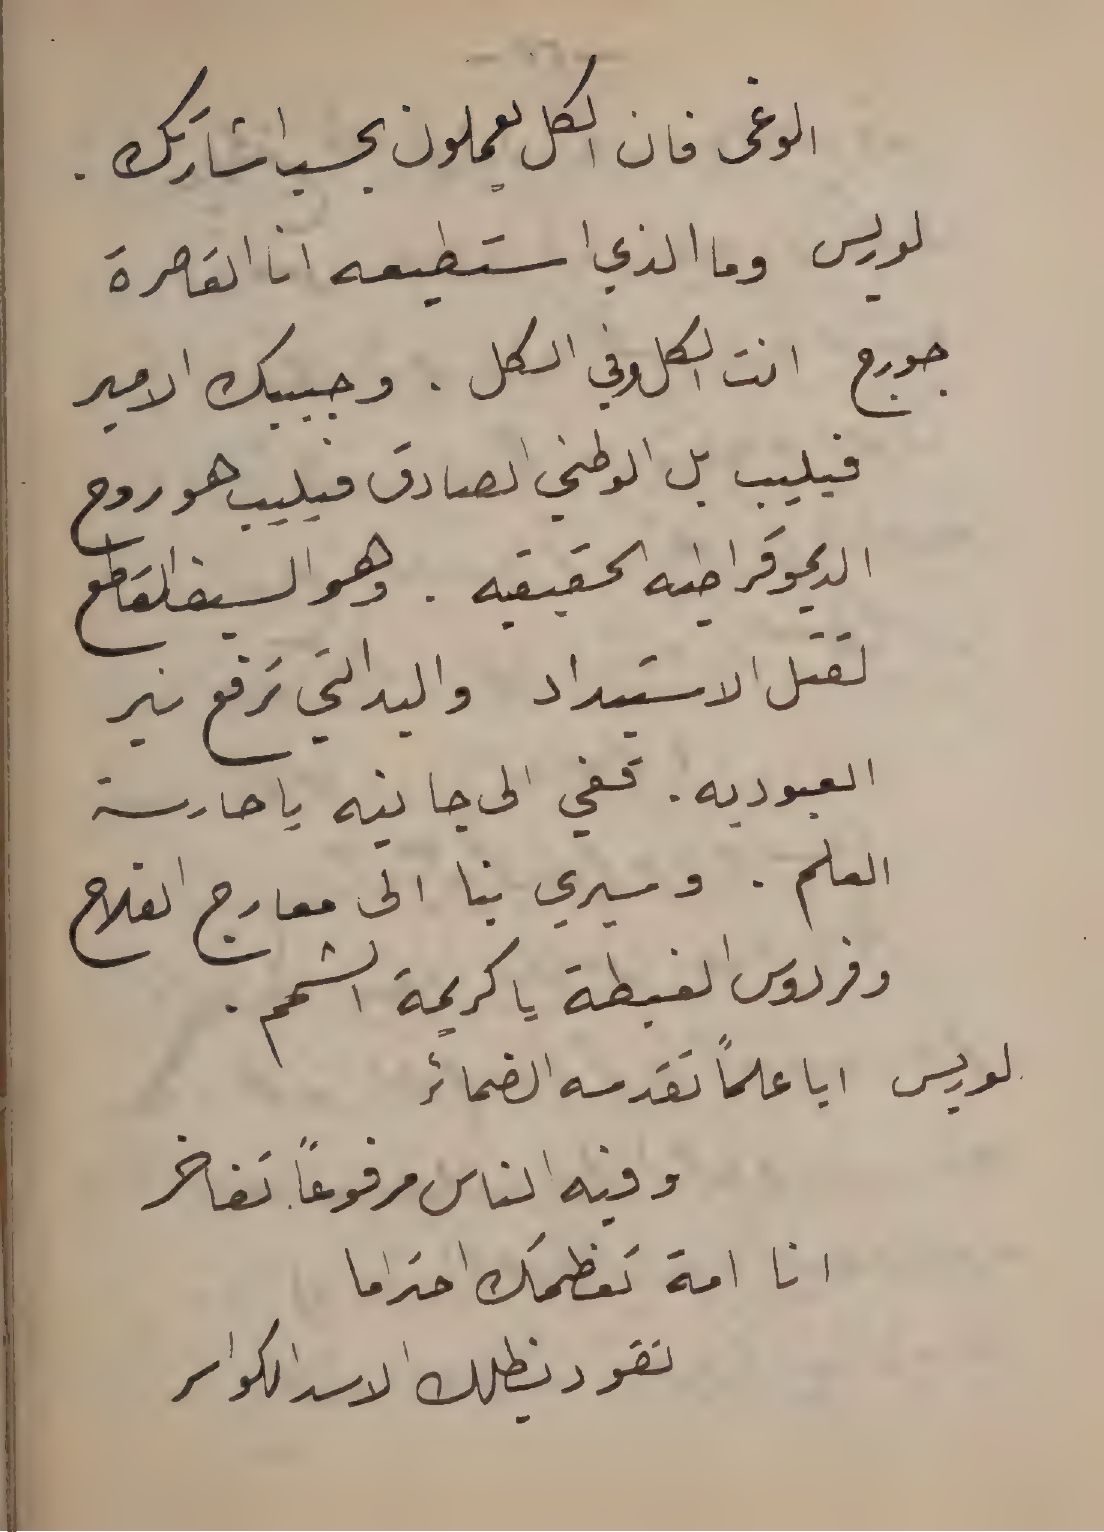 الوغى فان الكل يعملون بحسب اشارتك .
لوريس وما الذي استطيعه انا القاصرة
جورج انت الكل وفي الكل . وحبيبك الامير
فيليب بل الوطني الصادق فيليب هو روح
الديموقراطيه الحقيقيه . وهو السيف القاطع
لقتل الاستبداد واليد التي ترفع نير
العبوديه . قفي الى جانبه يا حارسة
العلم . وسيري بنا الى معارج الفلاح
وفردوس الغبطة يا كريمة الشمم .
لوريس ايا علماً تقدسه الضمائر
وفيه الناس مرفوعاً تفاخر
انا امة تعظمك احتراما
تقود بظلك الاسد الكواسر